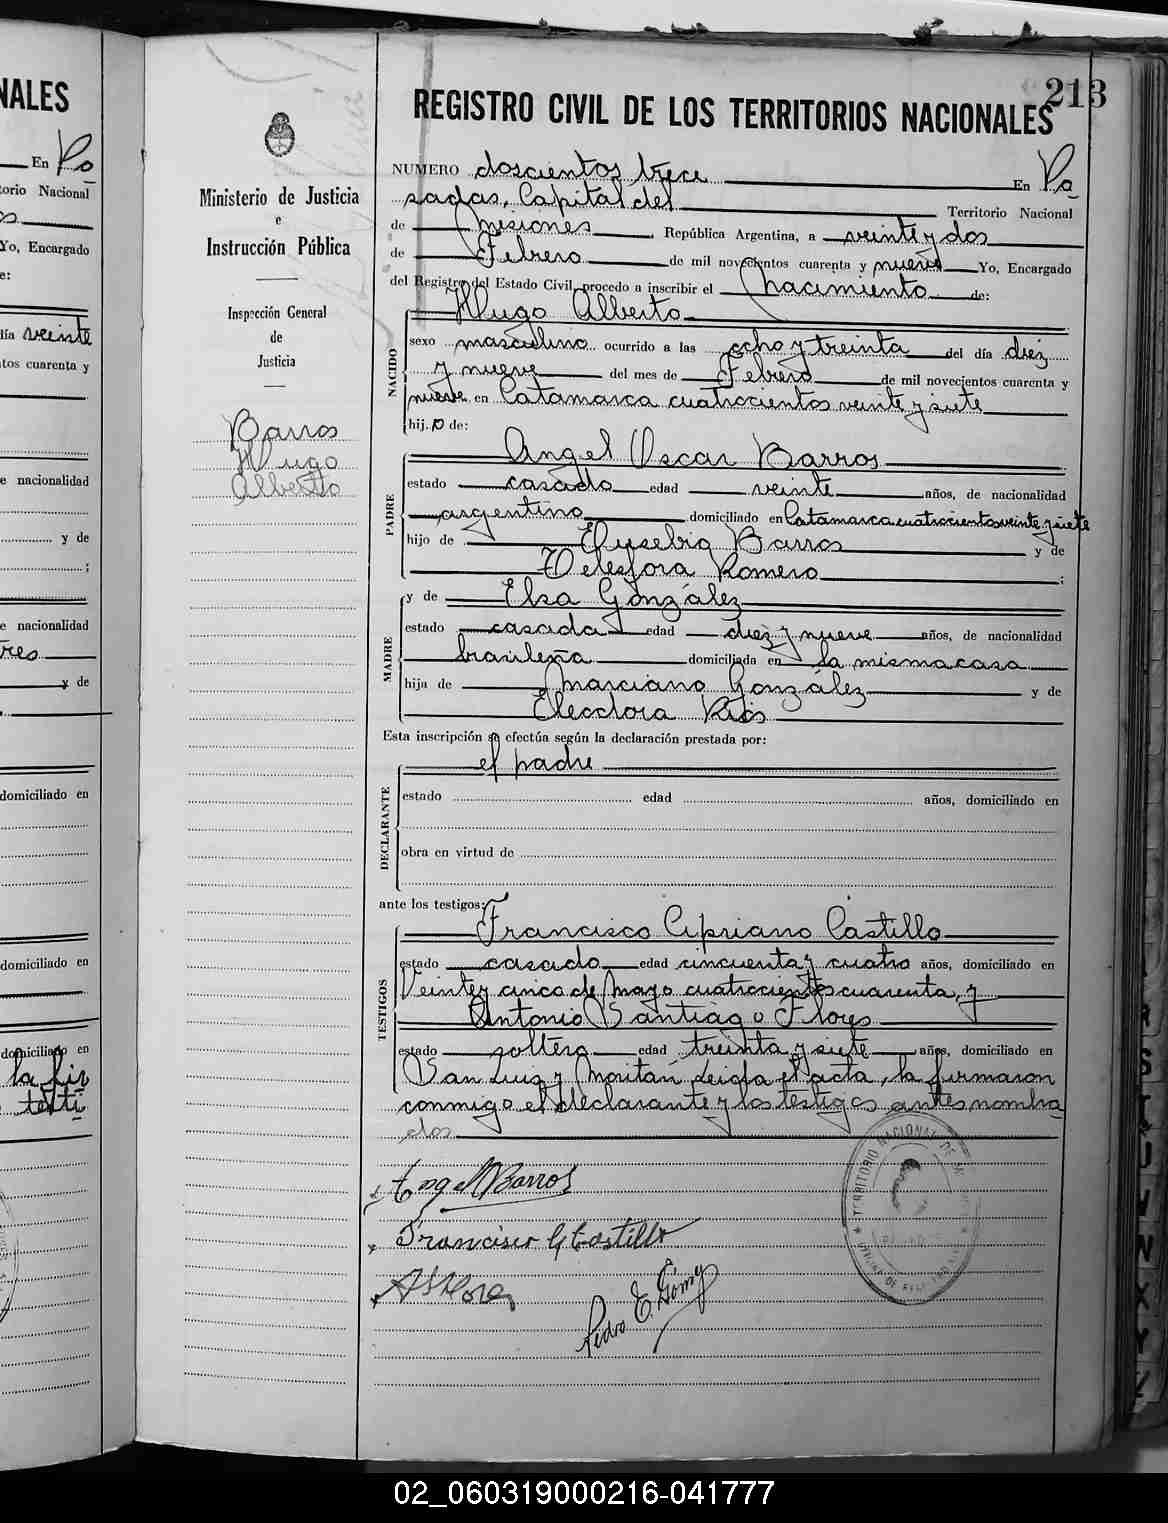 NALES
En Po
torio Nacional
Yo, Encargado
e:
día veinte
tos cuarenta y
e nacionalidad
y de
;
e nacionalidad
tres
y de
domiciliado en
domiciliado en
domiciliado en
la fir
testi
213
REGISTRO CIVIL DE LOS TERRITORIOS NACIONALES
Ministerio de Justicia
e
Instrucción Pública
Inspección General
de
Justicia
Barros
Hugo
Alberto
NUMERO doscientos trece En Po
sadas, Capital del Territorio Nacional
de Misiones República Argentina, a veinte y dos
de Febrero de mil novecientos cuarenta y nueve Yo, Encargado
del Registro del Estado Civil, procedo a inscribir el nacimiento de:
NACIDO
Hugo Alberto
sexo masculino ocurrido a las ocho y treinta del día diez
y nueve del mes de Febrero de mil novecientos cuarenta y
nueve en Catamarca cuatrocientos veinte y siete
hij.o de:
PADRE
Angel Oscar Barros
estado casado edad veinte años, de nacionalidad
argentino domiciliado en Catamarca cuatrocientos veinte y siete
hijo de Eusebio Barros y de
Telesfora Romero ;
MADRE
y de Elsa González
estado casada edad diez y nueve años, de nacionalidad
brasileña domiciliada en la misma casa
hija de Marciano González y de
Eleodora Ríos
Esta inscripción se efectúa según la declaración prestada por:
DECLARANTE
el padre
estado edad años, domiciliado en
obra en virtud de
ante los testigos:
TESTIGOS
Francisco Cipriano Castillo
estado casado edad cincuenta y cuatro años, domiciliado en
Veinte y cinco de Mayo cuatrocientos cuarenta, y
Antonio Santiago Flores
estado soltero edad treinta y siete años, domiciliado en
San Luis y Maitan Leida el acta, la firmaron
conmigo el declarante y los testigos antes nombra
dos
Angel Barros
Francisco C Castillo
A S Flores
Pedro E. Gómez
TERRITORIO NACIONAL DE
02_060319000216-041777